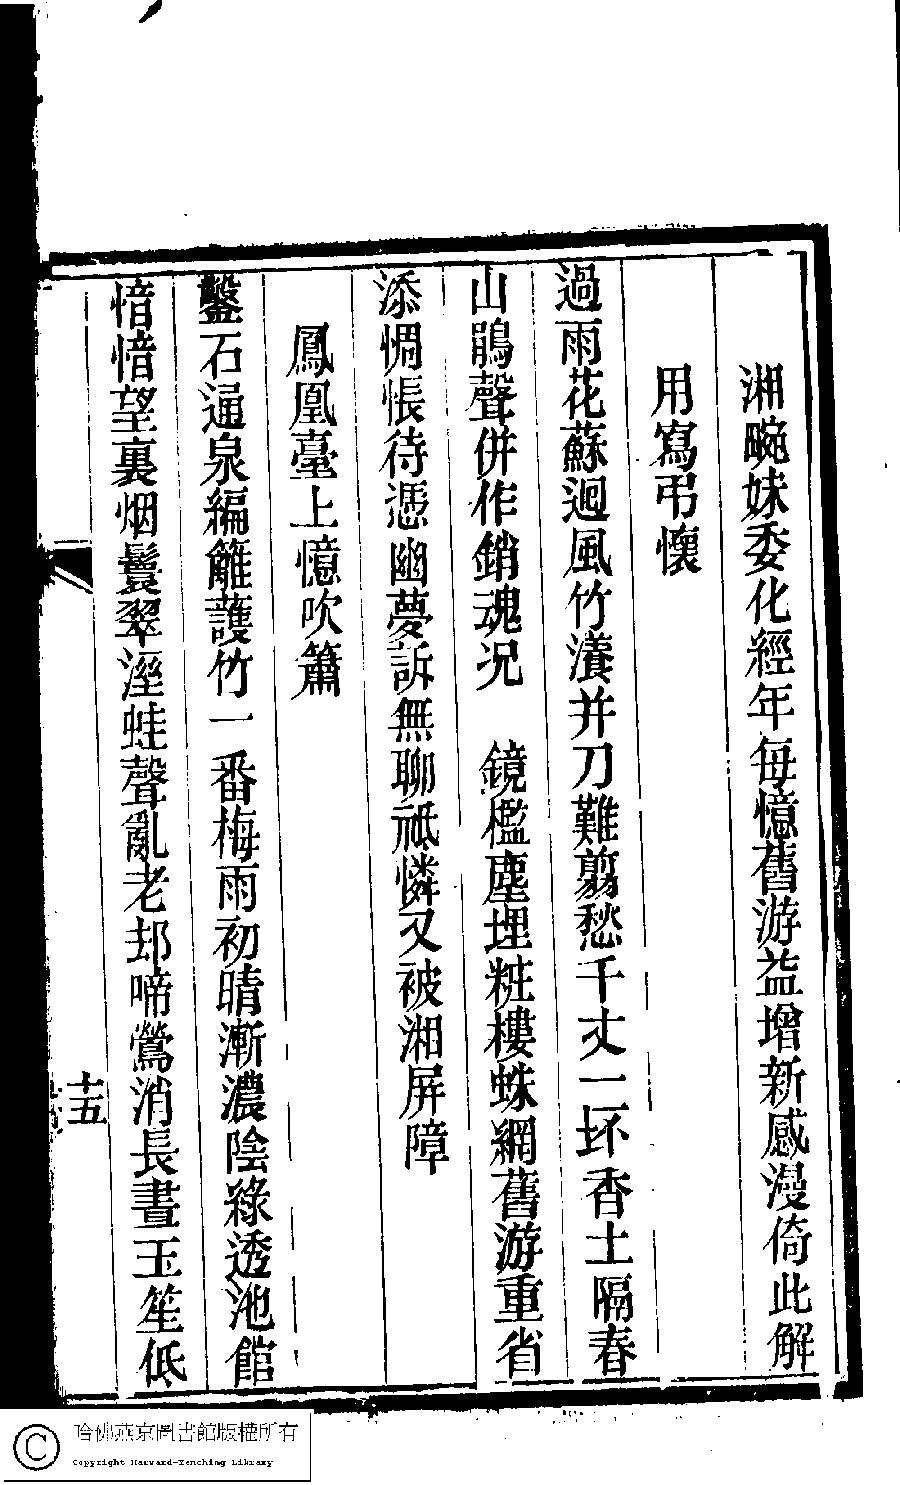 湘畹妹委化經年每憶舊游益增新感漫倚此解
用寫弔懷
過雨花蘇迴風竹瀁并刀難翦愁千丈一坏香土隔春
山鵑聲併作銷魂况　鏡檻塵埋粧樓蛛網舊游重省
添惆悵待憑幽夢訴無聊祗憐又被湘屏障
鳳凰臺上憶吹簫
鑿石通泉編籬護竹一番梅雨初晴漸濃陰綠透池館
愔愔望裏烟鬟翠溼蛙聲亂老却啼鶯消長晝玉笙低
十五
哈佛燕京圖書館版權所有
Copyright Harvard-Yenching Library